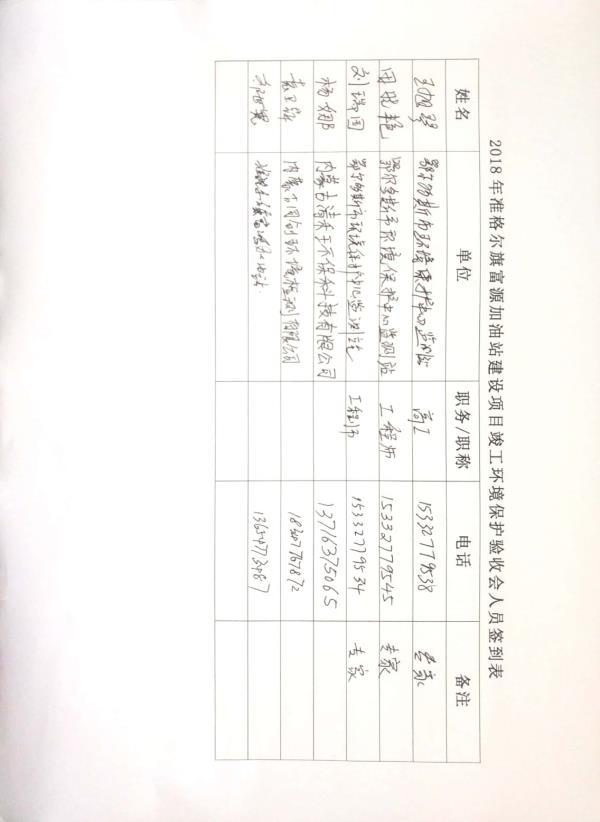 2018年准格尔旗富源加油站建设项目竣工环境保护验收会人员签到表
姓名 单位 职务/职称 电话 备注
鄂尔多斯市环境保护中心监测站 高工 15332779538 专家
田晓艳 鄂尔多斯市环境保护中心监测站 工程师 15332779545 专家
刘瑞国 鄂尔多斯市环境保护中心监测站 工程师 15332779534 专家
杨娜 内蒙古清禾环保科技有限公司 13716375065
内蒙古同创环境检测有限公司 18347767872
准格尔旗富源加油站 13654773487